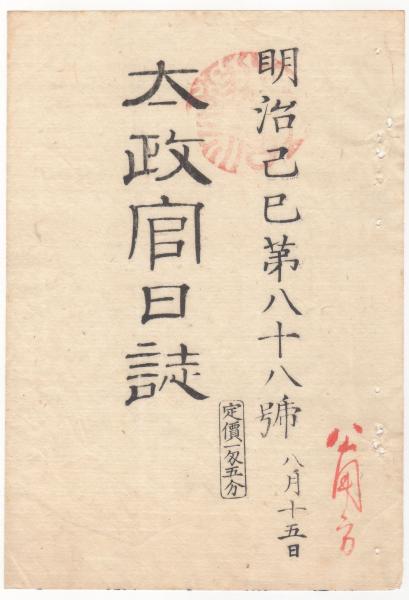 明治己巳第八十八號
八月十五日
太政官日誌
定價一匁五分